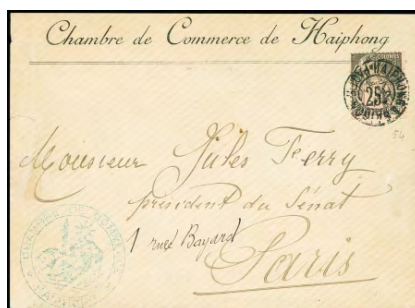 Chambre de Commerce de Haiphong
COLONIES
25
HAIPHONG
Monsieur Jules Ferry
président du Sénat
1 rue Bayard
Paris
CHAMBRE DE COMMERCE
54